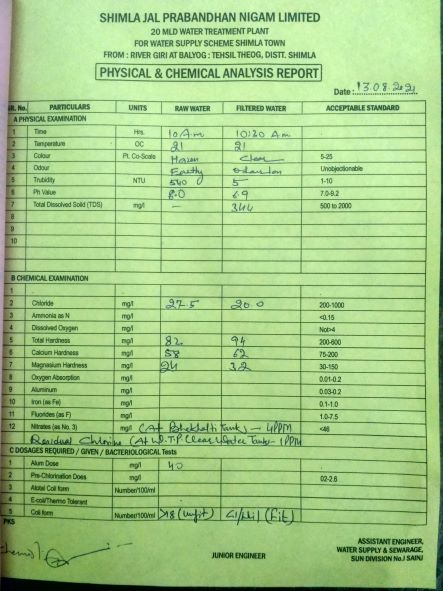 SHIMLA JAL PRABANDHAN NIGAM LIMITED
20 MLD WATER TREATMENT PLANT
FOR WATER SUPPLY SCHEME SHIMLA TOWN
FROM : RIVER GIRI AT BALYOG : TEHSIL THEOG, DISTT. SHIMLA
PHYSICAL & CHEMICAL ANALYSIS REPORT
Date : 13.08.2021
SR. No. PARTICULARS UNITS RAW WATER FILTERED WATER ACCEPTABLE STANDARD
A PHYSICAL EXAMINATION
1 Time Hrs. 10 Am 10:30 Am
2 Temperature OC 21 21
3 Colour Pt. Co-Scale Clear 5-25
4 Odour Earthy Unobjectionable
5 Trubidity NTU 540 5 1-10
6 Ph Value 8.0 6.9 7.0-9.2
7 Total Dissolved Solid (TDS) mg/l — 344 500 to 2000
8
9
10
B CHEMICAL EXAMINATION
1
2 Chloride mg/l 27.5 20.0 200-1000
3 Ammonia as N mg/l <0.15
4 Dissolved Oxygen mg/l Not>4
5 Total Hardness mg/l 82 94 200-600
6 Calcium Hardness mg/l 58 62 75-200
7 Magnesium Hardness mg/l 24 32 30-150
8 Oxygen Absorption mg/l 0.01-0.2
9 Aluminum mg/l 0.03-0.2
10 Iron (as Fe) mg/l 0.1-1.0
11 Fluorides (as F) mg/l 1.0-7.5
12 Nitrates (as No. 3) mg/l (At Tank) - 4PPM <46
Residual Chlorine (At W.T.P Clear Water Tank - 1 PPM
C DOSAGES REQUIRED / GIVEN / BACTERIOLOGICAL Tests
1 Alum Dose mg/l 40
2 Pre-Chlorination Does mg/l 02-2.6
3 Atotal Coli form Number/100/ml
4 E-coli/Thermo Tolerant
5 Coli form Number/100/ml >18 (unfit) (fit)
PKS
JUNIOR ENGINEER
ASSISTANT ENGINEER,
WATER SUPPLY & SEWARAGE,
SUN DIVISION No.I SAINJ